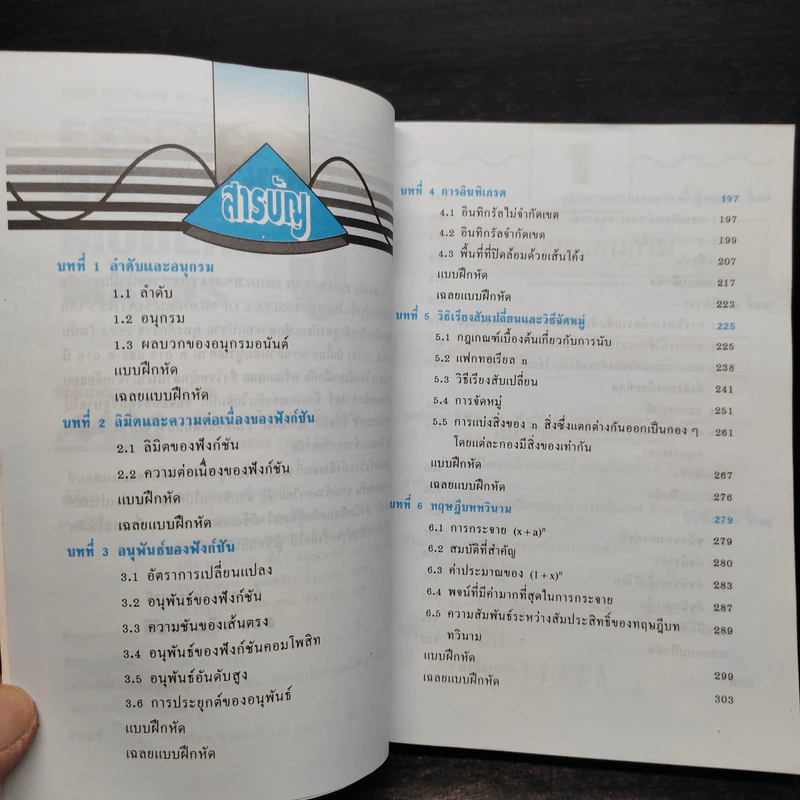 สารบัญ
บทที่ 1 ลำดับและอนุกรม
1.1 ลำดับ
1.2 อนุกรม
1.3 ผลบวกของอนุกรมอนันต์
แบบฝึกหัด
เฉลยแบบฝึกหัด
บทที่ 2 ลิมิตและความต่อเนื่องของฟังก์ชัน
2.1 ลิมิตของฟังก์ชัน
2.2 ความต่อเนื่องของฟังก์ชัน
แบบฝึกหัด
เฉลยแบบฝึกหัด
บทที่ 3 อนุพันธ์ของฟังก์ชัน
3.1 อัตราการเปลี่ยนแปลง
3.2 อนุพันธ์ของฟังก์ชัน
3.3 ความชันของเส้นตรง
3.4 อนุพันธ์ของฟังก์ชันคอมโพสิท
3.5 อนุพันธ์อันดับสูง
3.6 การประยุกต์ของอนุพันธ์
แบบฝึกหัด
เฉลยแบบฝึกหัด
บทที่ 4 การอินทิเกรต 197
4.1 อินทิกรัลไม่จำกัดเขต 197
4.2 อินทิกรัลจำกัดเขต 199
4.3 พื้นที่ที่ปิดล้อมด้วยเส้นโค้ง 207
แบบฝึกหัด 217
เฉลยแบบฝึกหัด 223
บทที่ 5 วิธีเรียงสับเปลี่ยนและวิธีจัดหมู่ 225
5.1 กฎเกณฑ์เบื้องต้นเกี่ยวกับการนับ 225
5.2 แฟกทอเรียล n 238
5.3 วิธีเรียงสับเปลี่ยน 241
5.4 การจัดหมู่ 251
5.5 การแบ่งสิ่งของ n สิ่งซึ่งแตกต่างกันออกเป็นกอง ๆ 261
โดยแต่ละกองมีสิ่งของเท่ากัน
แบบฝึกหัด 267
เฉลยแบบฝึกหัด 276
บทที่ 6 ทฤษฎีบททวินาม 279
6.1 การกระจาย (x+a)ⁿ 279
6.2 สมบัติที่สำคัญ 280
6.3 ค่าประมาณของ (1+x)ⁿ 283
6.4 พจน์ที่มีค่ามากที่สุดในการกระจาย 287
6.5 ความสัมพันธ์ระหว่างสัมประสิทธิ์ของทฤษฎีบท 289
ทวินาม
แบบฝึกหัด 299
เฉลยแบบฝึกหัด 303